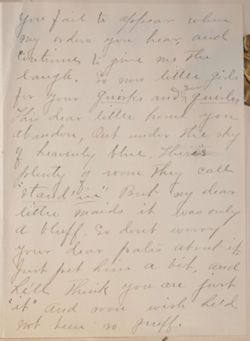 You fail to appear when
my orders you hear, and
continue to give me the
laugh. So now little girls
for your quirks and your quirles
This dear little home you
abandon, Out under the sky
of heavenly blue, Theres
plenty of room they call
"stand in". But my dear
little maids it was only
a bluff. So dont worry
your dear pates about it
Just pet him a bit, and
he'll think you are just
"it" and soon wish he'd
not been so gruff.